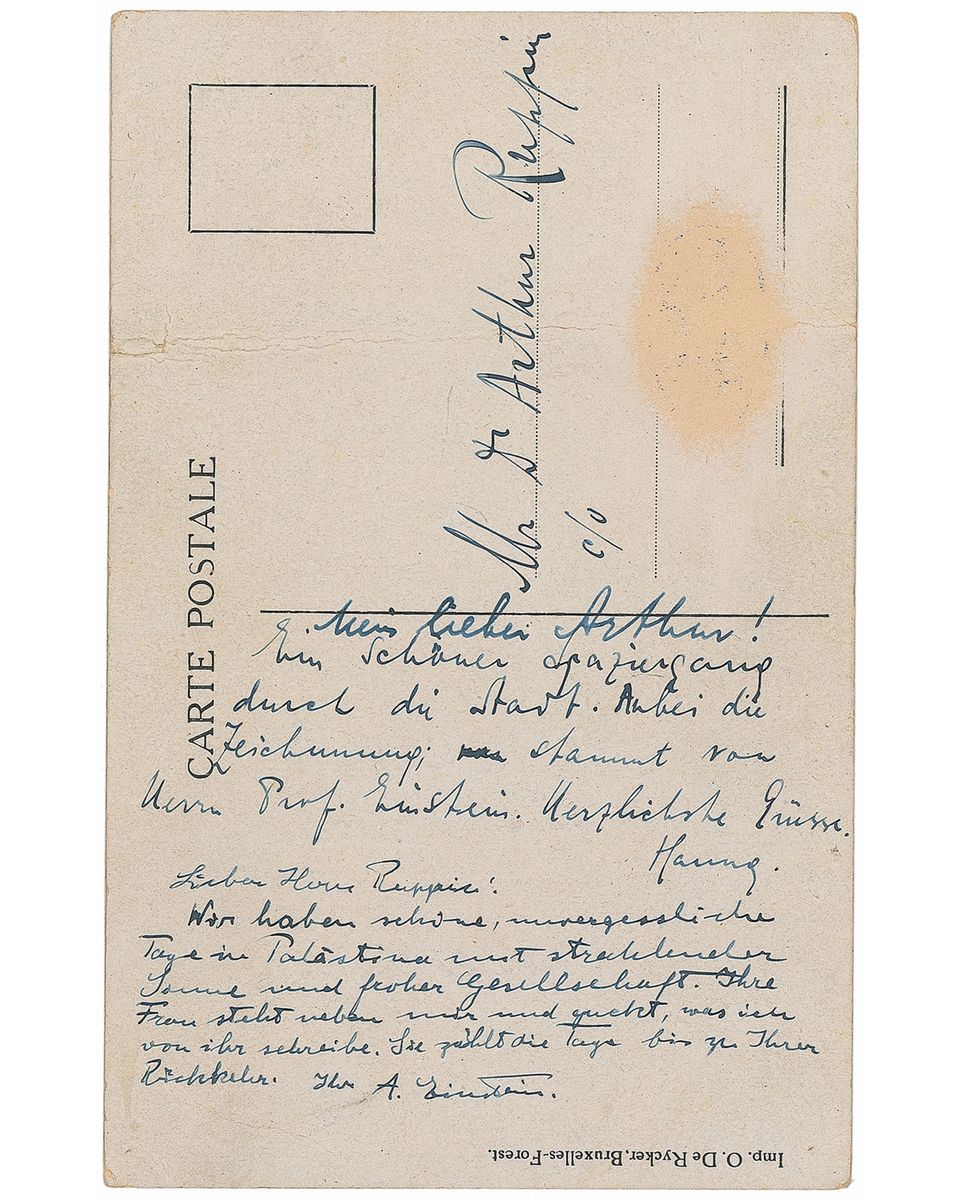 CARTE POSTALE
Mr Dr Arthur Ruppin
c/o
Mein lieber Arthur!
Ein schöner Spaziergang
durch die Stadt. Anbei die
Zeichnung; stammt von
Herrn Prof. Einstein. Herzlichste Grüsse.
Hanna.
Lieber Herr Ruppin!
Wir haben schöne, unvergessliche
Tage in Palästina mit strahlender
Sonne und froher Gesellschaft. Ihre
Frau steht neben mir und guckt, was ich
von ihr schreibe. Sie zählt die Tage bis zu Ihrer
Rückkehr. Ihr A. Einstein.
Imp. O. De Rycker, Bruxelles-Forest.